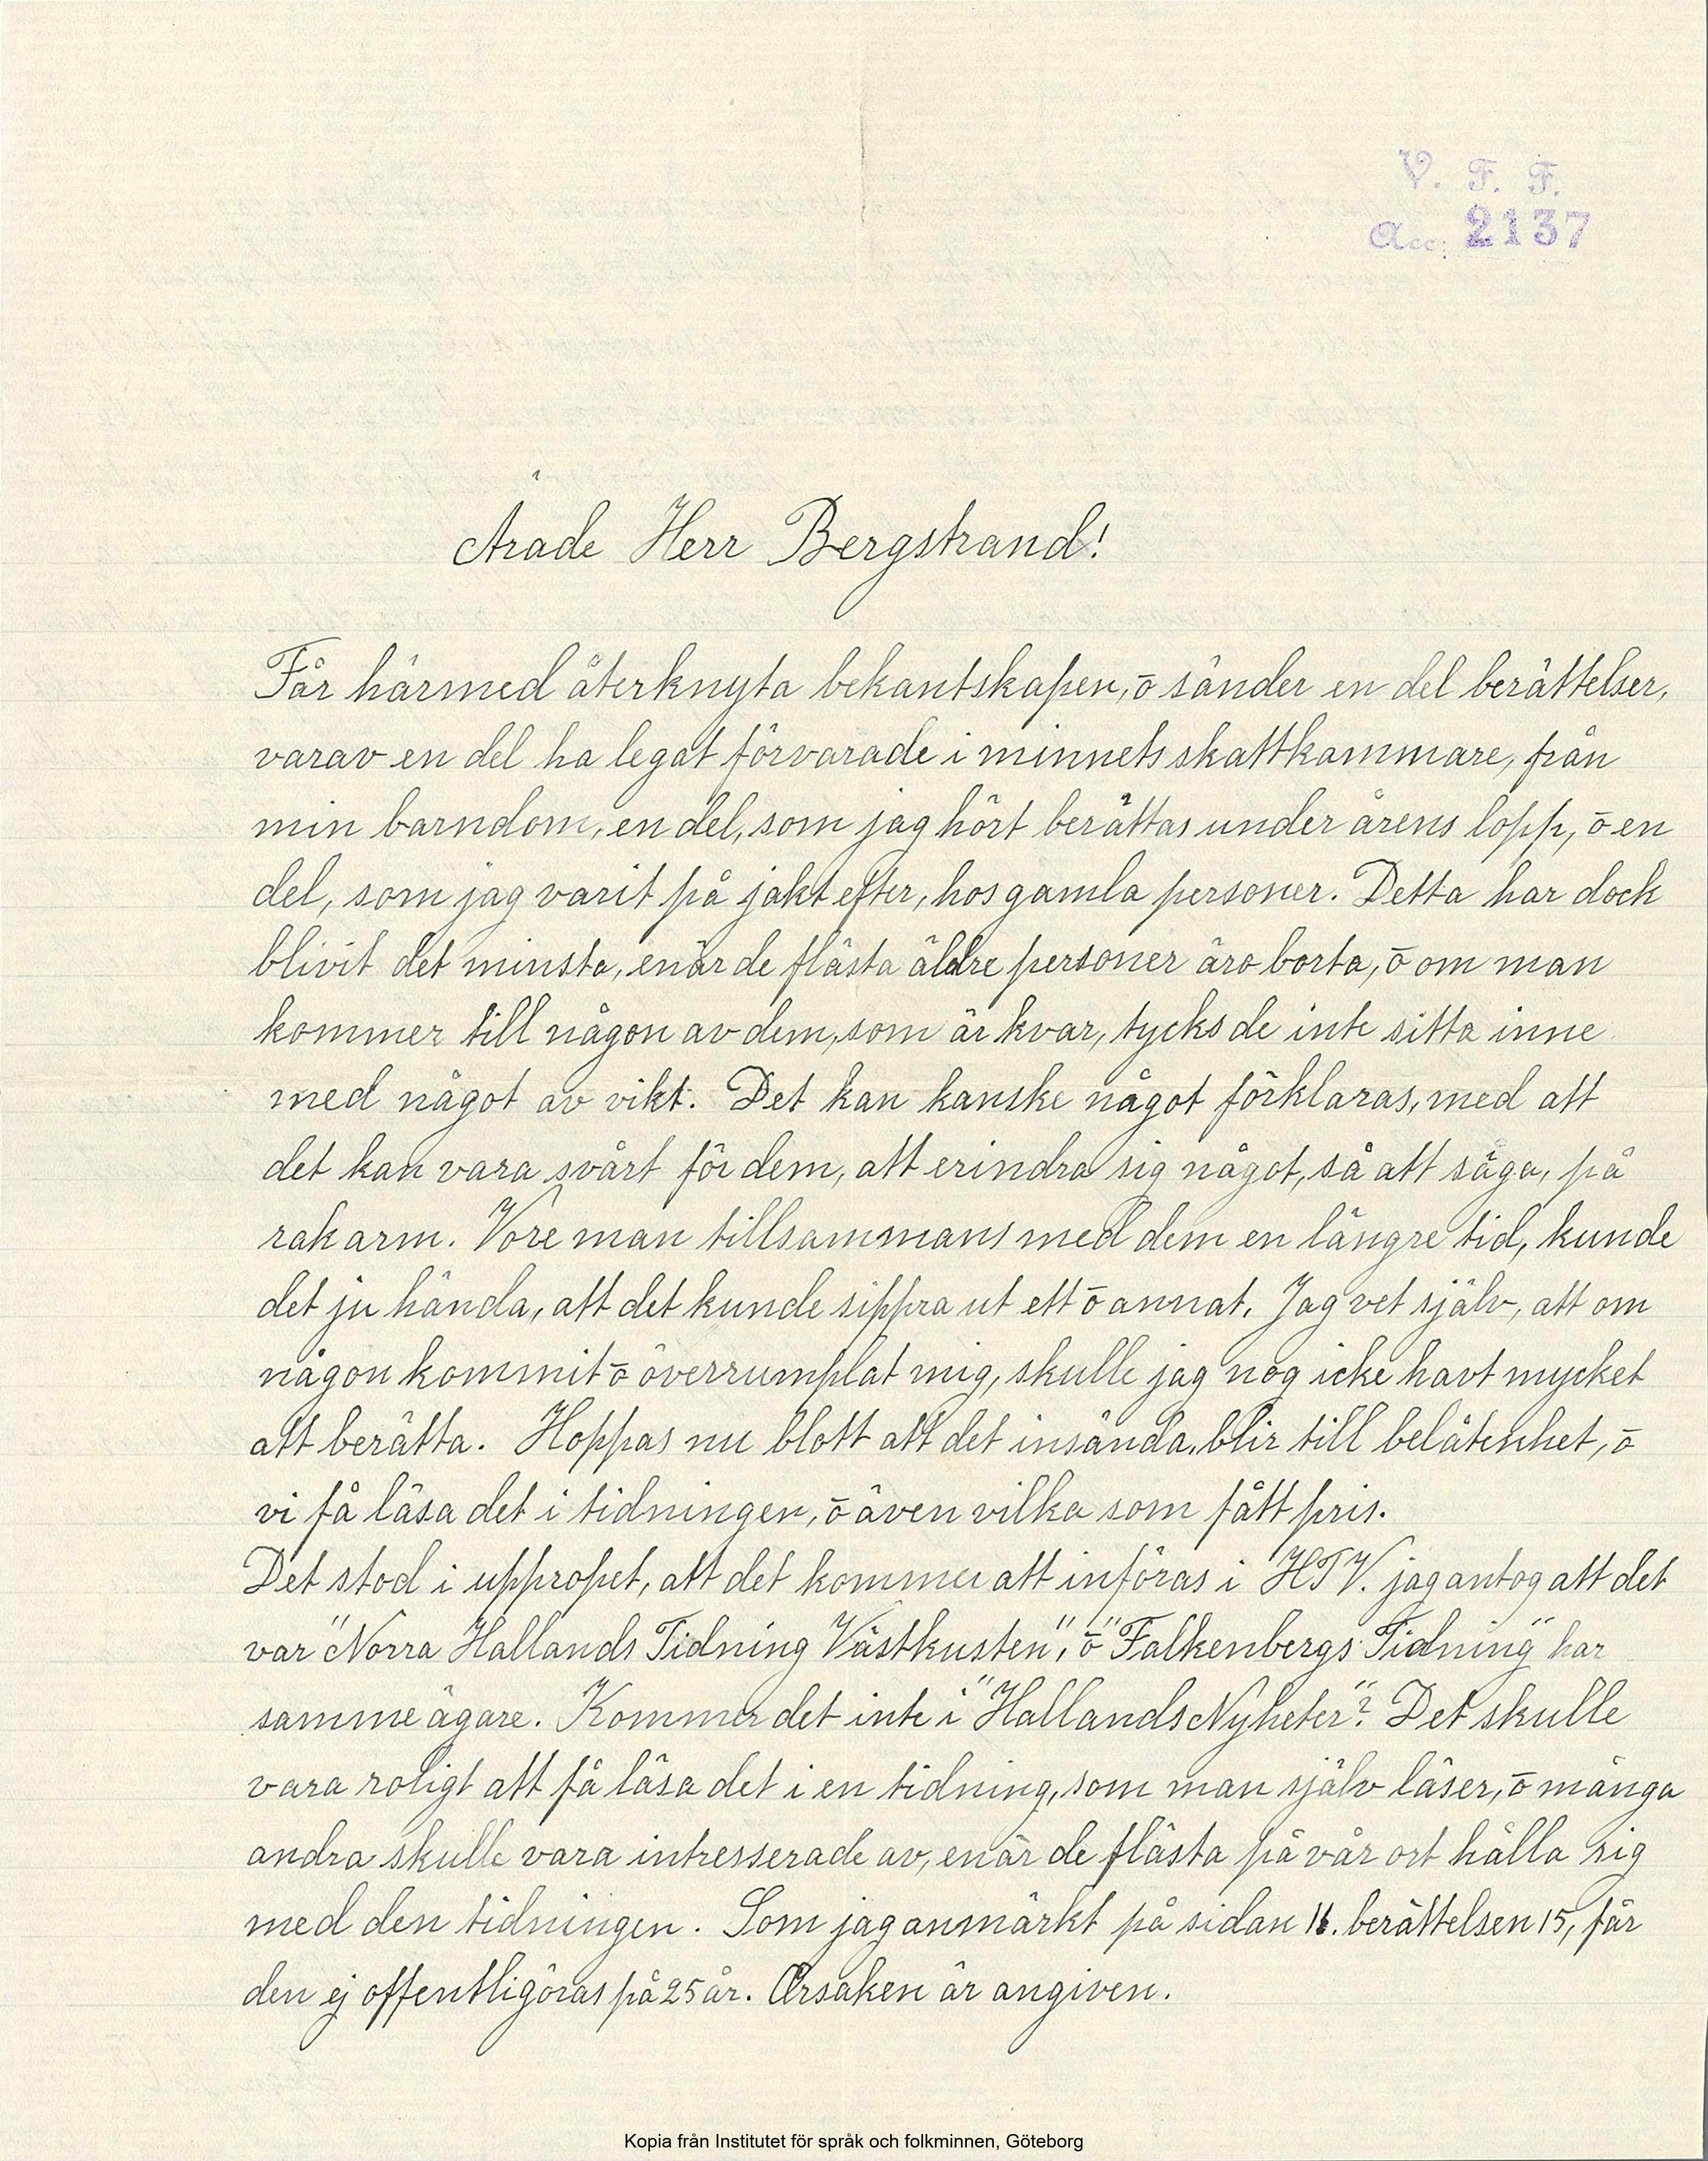 V. F. F.
Acc: 2137
Ärade Herr Bergstrand!
Får härmed återknyta bekantskapen, ō sänder en del berättelser,
varav en del ha legat förvarade i minnets skattkammare, från
min barndom, en del, som jag hört berättas under årens lopp, ō en
del, som jag varit på jakt efter, hos gamla personer. Detta har dock
blivit det minsta, enär de flästa äldre personer äro borta, ō om man
kommer till någon av dem, som är kvar, tycks de inte sitta inne
med något av vikt. Det kan kanske något förklaras, med att
det kan vara svårt för dem, att erindra sig något, så att säga, på
rak arm. Vore man tillsammans med dem en längre tid, kunde
det ju hända, att det kunde sippra ut ett ō annat. Jag vet själv, att om
någon kommit ō överrumplat mig, skulle jag nog icke havt mycket
att berätta. Hoppas nu blott att det insända, blir till belåtenhet, ō
vi få läsa det i tidningen, ō även vilka som fått pris.
Det stod i uppropet, att det kommer att införas i HTV. jag antog att det
var "Norra Hallands Tidning Västkusten", ō "Falkenbergs Tidning" har
samme ägare. Kommer det inte i "Hallands Nyheter"? Det skulle
vara roligt att få läsa det i en tidning, som man själv läser, ō många
andra skulle vara intresserade av, enär de flästa på vår ort hålla sig
med den tidningen. Som jag anmärkt på sidan 16. berättelsen 15, får
den ej offentligöras på 25 år. Orsaken är angiven.
Kopia från Institutet för språk och folkminnen, Göteborg